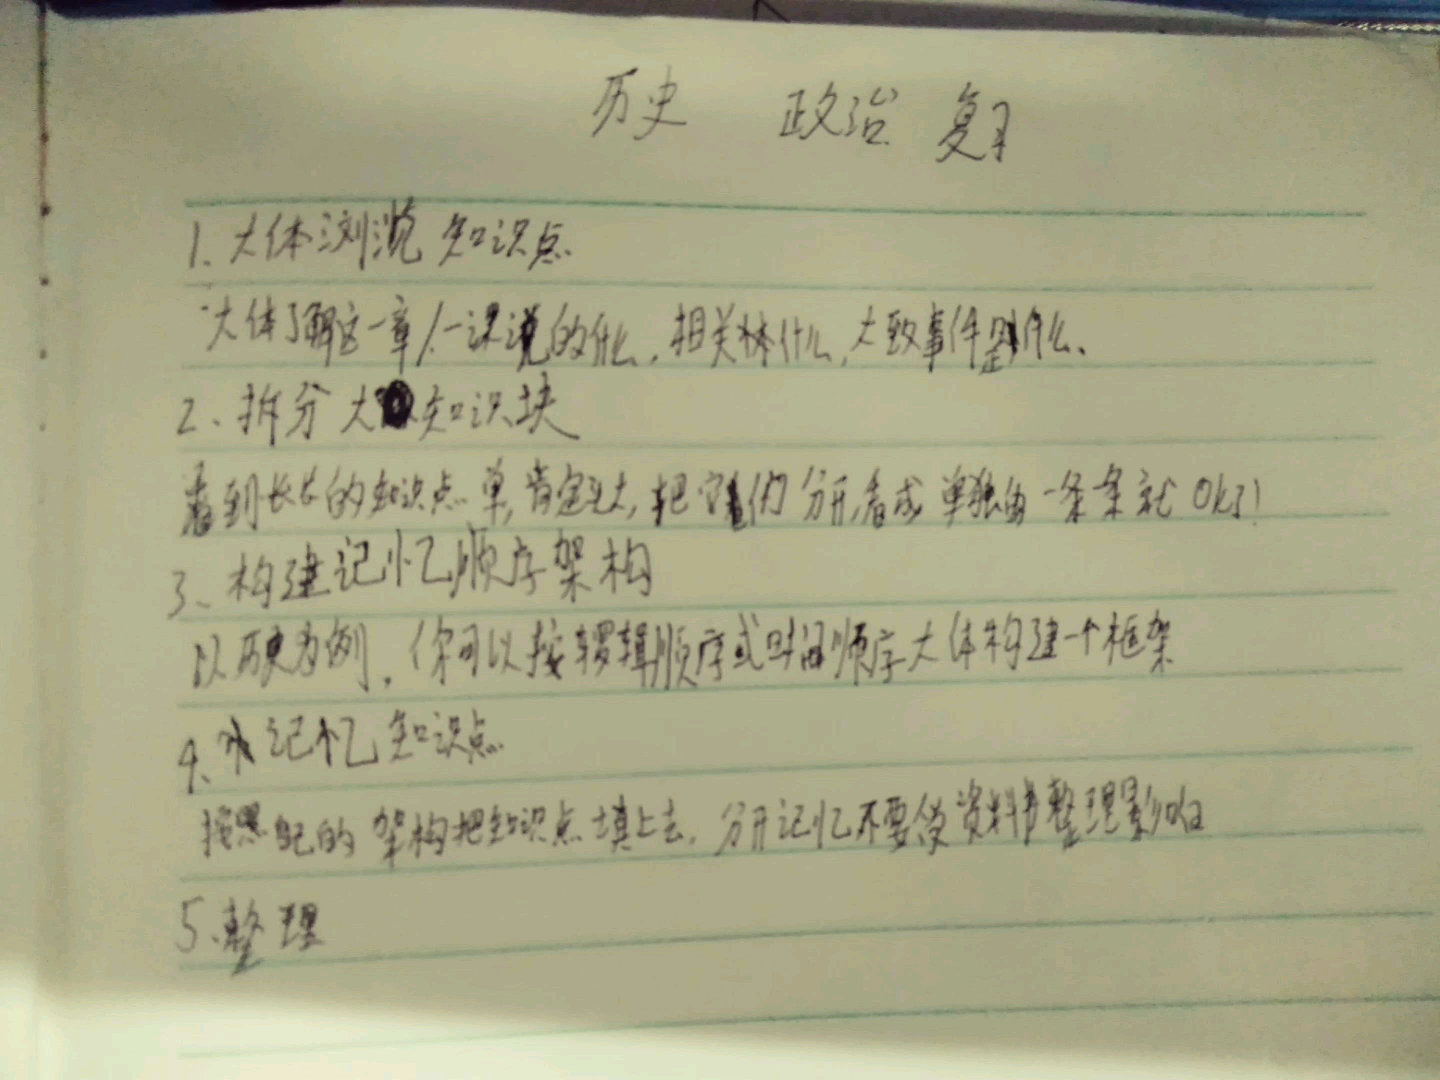 历史 政治 复习
1、大体浏览知识点
大体了解这一章/一课说的什么,相关林什么,大致事件是什么、
2、拆分大知识块
看到长长的知识点单,肯定头大,把它们分开,看成单独的一条条就OK了!
3、构建记忆顺序架构
以历史为例,你可以按逻辑顺序或时间顺序大体构建一个框架
4、记忆知识点
按照自己的架构把知识点填上去,分开记忆不要受资料书整理影响
5、整理